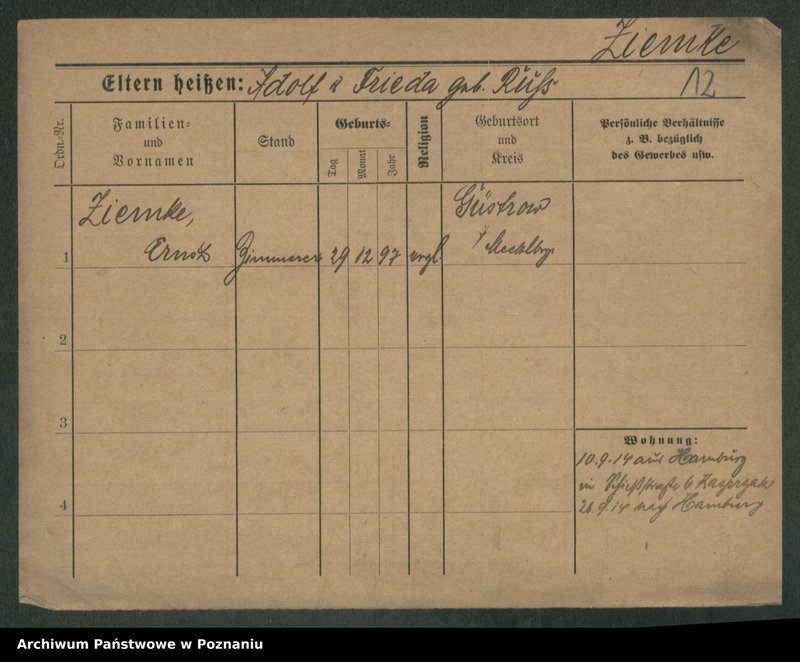 Ziemke
Eltern heißen: Adolf u Frieda geb. Russ
12
Ordn.-Nr.
Familien-
und
Vornamen
Stand
Geburts-
Tag
Monat
Jahr
Religion
Geburtsort
und
Kreis
Persönliche Verhältnisse
z. B. bezüglich
des Gewerbes usw.
Ziemke, Güstrow
1 Ernst Zimmerer 29 12 97 evgl. Mecklbrg.
2
3
Wohnung:
10.9.14 aus Hamburg
in Schießstraße 6
4 26.9.14 nach Hamburg
Archiwum Państwowe w Poznaniu